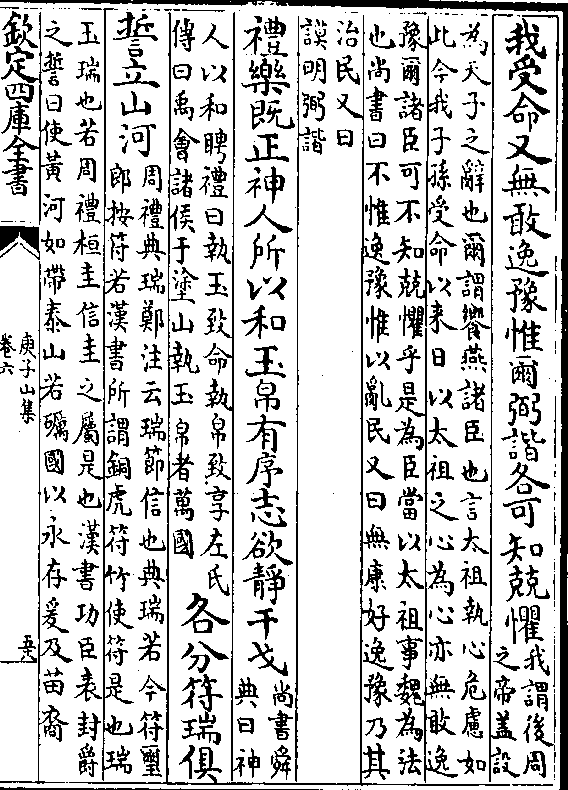 我受命又無敢逸豫惟爾弼諧各可知兢懼我謂後周
之帝蓋設
為天子之辭也爾謂饗燕諸臣也言太祖執心危慮如
此今我子孫受命以来日以太祖之心為心亦無敢逸
豫爾諸臣可不知兢懼乎是為臣當以太祖事魏為法
也尚書曰不惟逸豫惟以亂民又曰無康好逸豫乃其
治民又曰
謨明弼諧
禮樂既正神人所以和玉帛有序志欲靜干戈尚書舜
典曰神
人以和聘禮曰執玉致命執帛致享左氏
傳曰禹會諸侯于塗山執玉帛者萬國各分符瑞俱
誓立山河周禮典瑞鄭注云瑞節信也典瑞若今符璽
郎按符若漢書所謂銅虎符竹使符是也瑞
玉瑞也若周禮桓圭信圭之屬是也漢書功臣表封爵
之誓曰使黄河如帶泰山若礪國以永存爰及苗裔
欽定四庫全書
庾子山集
卷六